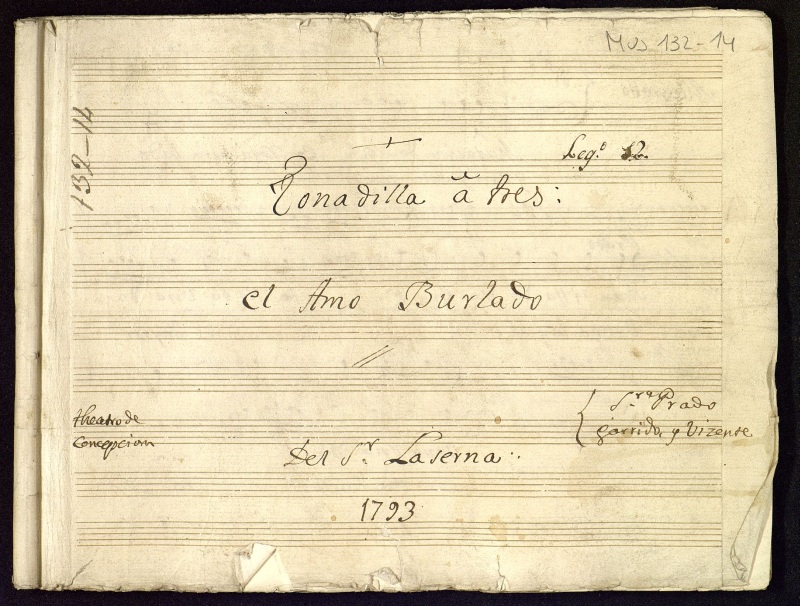 MUS 132-14
132-14
Leg.º 12.
Tonadilla â tres:
el Amo Burlado
Sr.ª Prado
theatro de
Garrido, y Vizente
Concepcion
Del Sr. Laserna..
1793